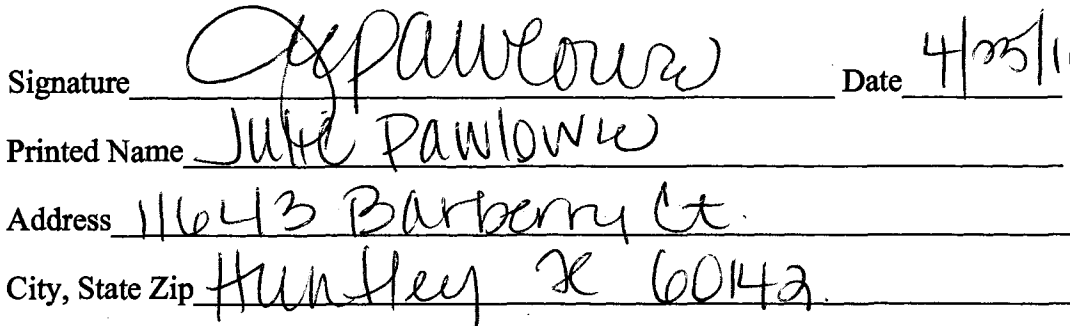 Signature Date 4/25/1
Printed Name Julie Pawlowic
Address 11643 Barberry Ct.
City, State Zip Huntley IL 60142